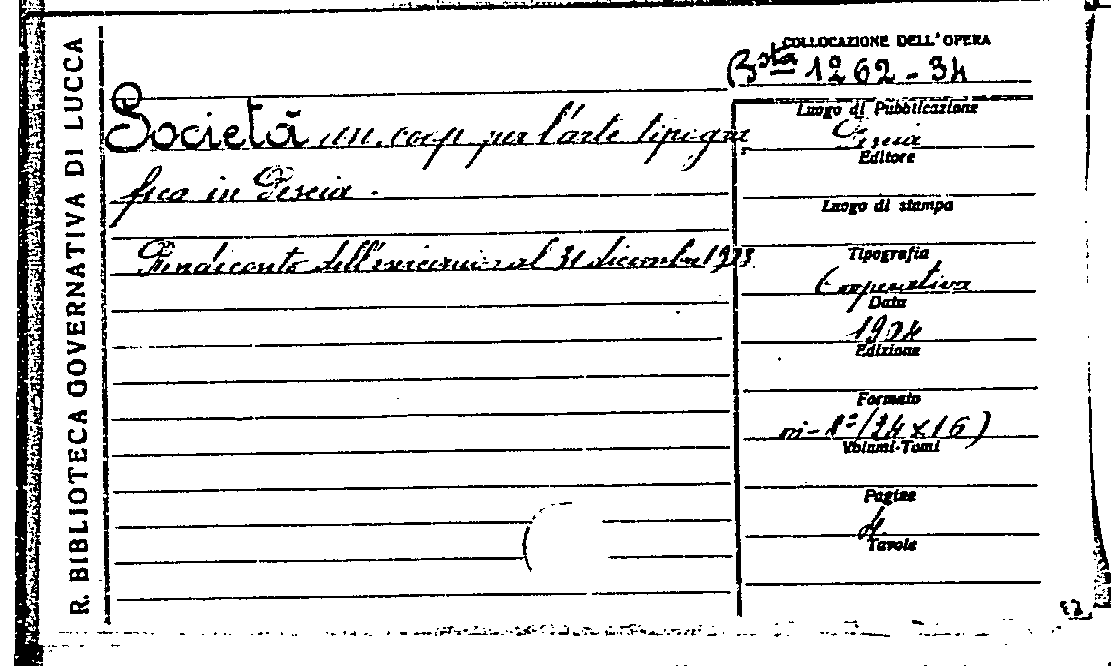 R. BIBLIOTECA GOVERNATIVA DI LUCCA
COLLOCAZIONE DELL'OPERA
Bsta 1262-34
Società an. coop. per l'arte tipogra
fica in Pescia.
Rendiconto dell'esercizio al 31 dicembre 1923
Luogo di Pubblicazione
Pescia
Editore
Luogo di stampa
Tipografia
Cooperativa
Data
1924
Edizione
Formato
in-8º (24x16)
Volumi-Tomi
Pagine
4
Tavole